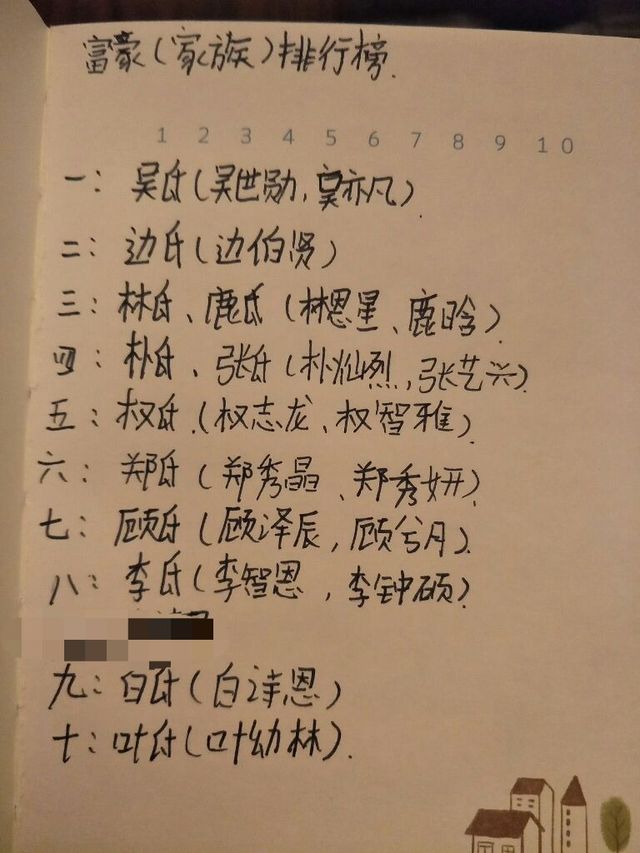 富豪(家族)排行榜.
1 2 3 4 5 6 7 8 9 10
一: 吴氏(吴世勋,吴亦凡).
二: 边氏(边伯贤)
三: 林氏、鹿氏(林恩星、鹿晗).
四: 朴氏、张氏(朴灿烈,张艺兴).
五: 权氏.(权志龙、权智雅).
六: 郑氏(郑秀晶、郑秀妍).
七: 顾氏(顾泽辰,顾兮月).
八: 李氏(李智恩,李钟硕).
九: 白氏(白诗恩)
十: 叶氏(叶幼林).